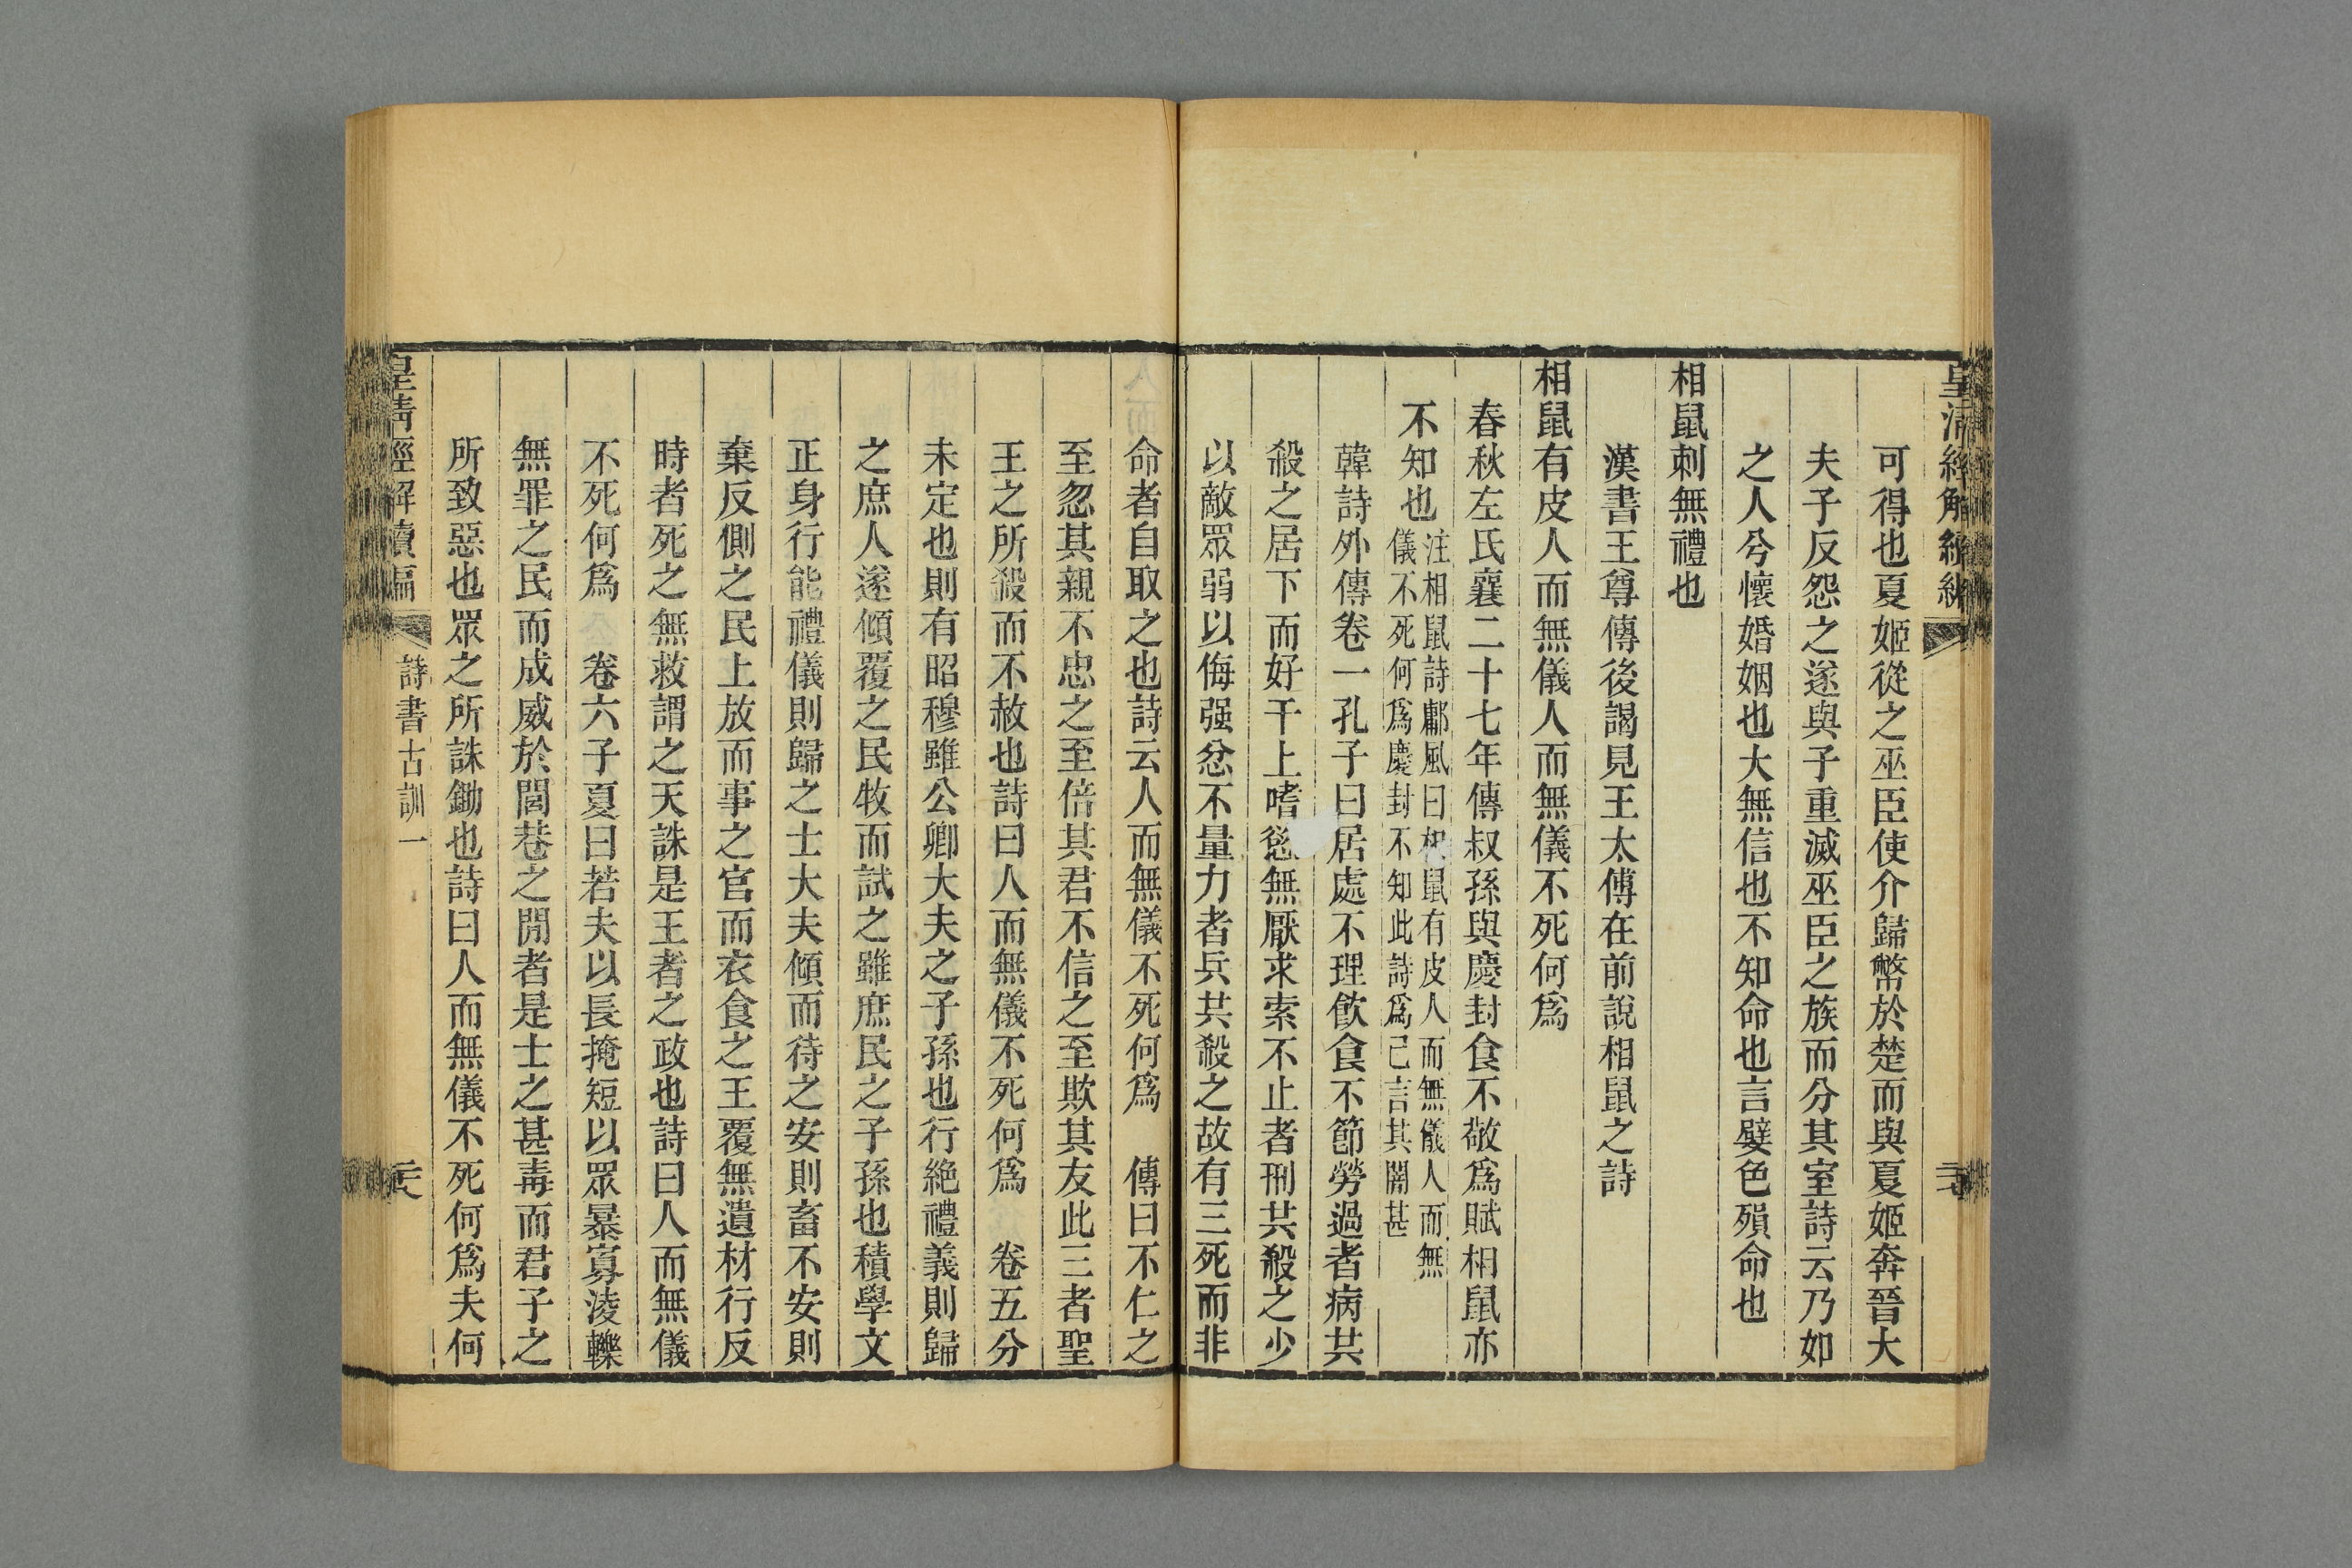 皇清經解續編
可得也夏姬從之巫臣使介歸幣於楚而與夏姬奔晉大
夫子反怨之遂與子重滅巫臣之族而分其室詩云乃如
之人兮懷婚姻也大無信也不知命也言嬖色殞命也
相鼠刺無禮也
漢書王尊傳後謁見王太傅在前說相鼠之詩
相鼠有皮人而無儀人而無儀不死何爲
春秋左氏襄二十七年傳叔孫與慶封食不敬爲賦相鼠亦
不知也
注相鼠詩鄘風曰相鼠有皮人而無儀人而無
儀不死何爲慶封不知此詩爲己言其闇甚
韓詩外傳卷一孔子曰居處不理飮食不節勞過者病共
殺之居下而好干上嗜慾無厭求索不止者刑共殺之少
以敵眾弱以侮强忿不量力者兵共殺之故有三死而非
命者自取之也詩云人而無儀不死何爲　傳曰不仁之
至忽其親不忠之至倍其君不信之至欺其友此三者聖
王之所殺而不赦也詩曰人而無儀不死何爲　卷五分
未定也則有昭穆雖公卿大夫之子孫也行絶禮義則歸
之庶人遂傾覆之民牧而試之雖庶民之子孫也積學文
正身行能禮儀則歸之士大夫傾而待之安則畜不安則
棄反側之民上放而事之官而衣食之王覆無遺材行反
時者死之無救謂之天誅是王者之政也詩曰人而無儀
不死何爲　卷六子夏曰若夫以長掩短以眾暴寡淩轢
無罪之民而成威於閭巷之閒者是士之甚毒而君子之
所致惡也眾之所誅鋤也詩曰人而無儀不死何爲夫何
皇清經解續編　詩書古訓一